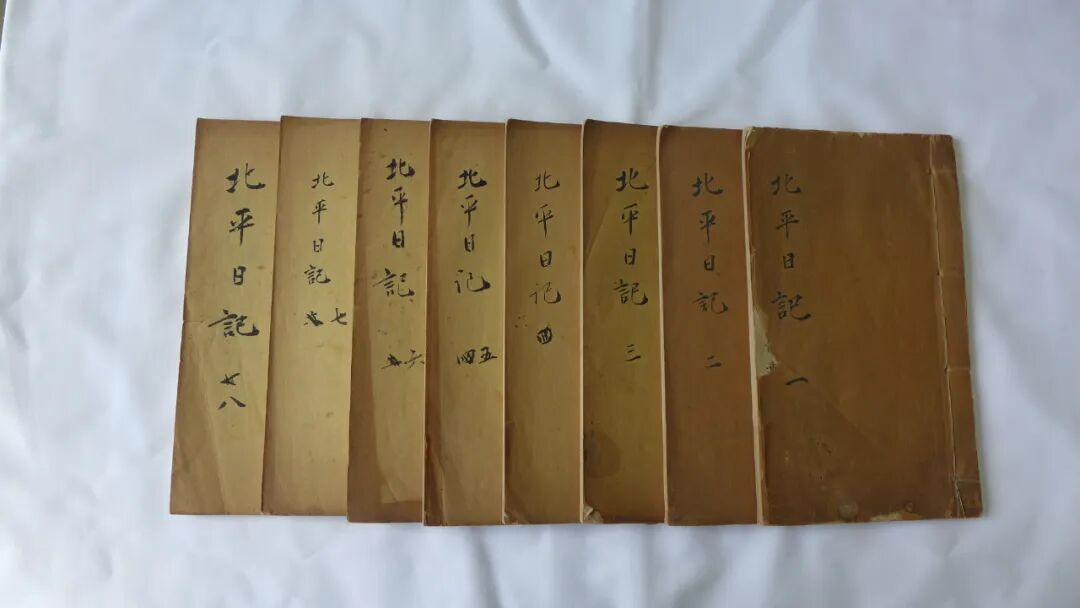 北平日記 一
北平日記 二
北平日記 三
北平日记 四
北平日记 五
北平日記 六
北平日記 七
北平日記 八